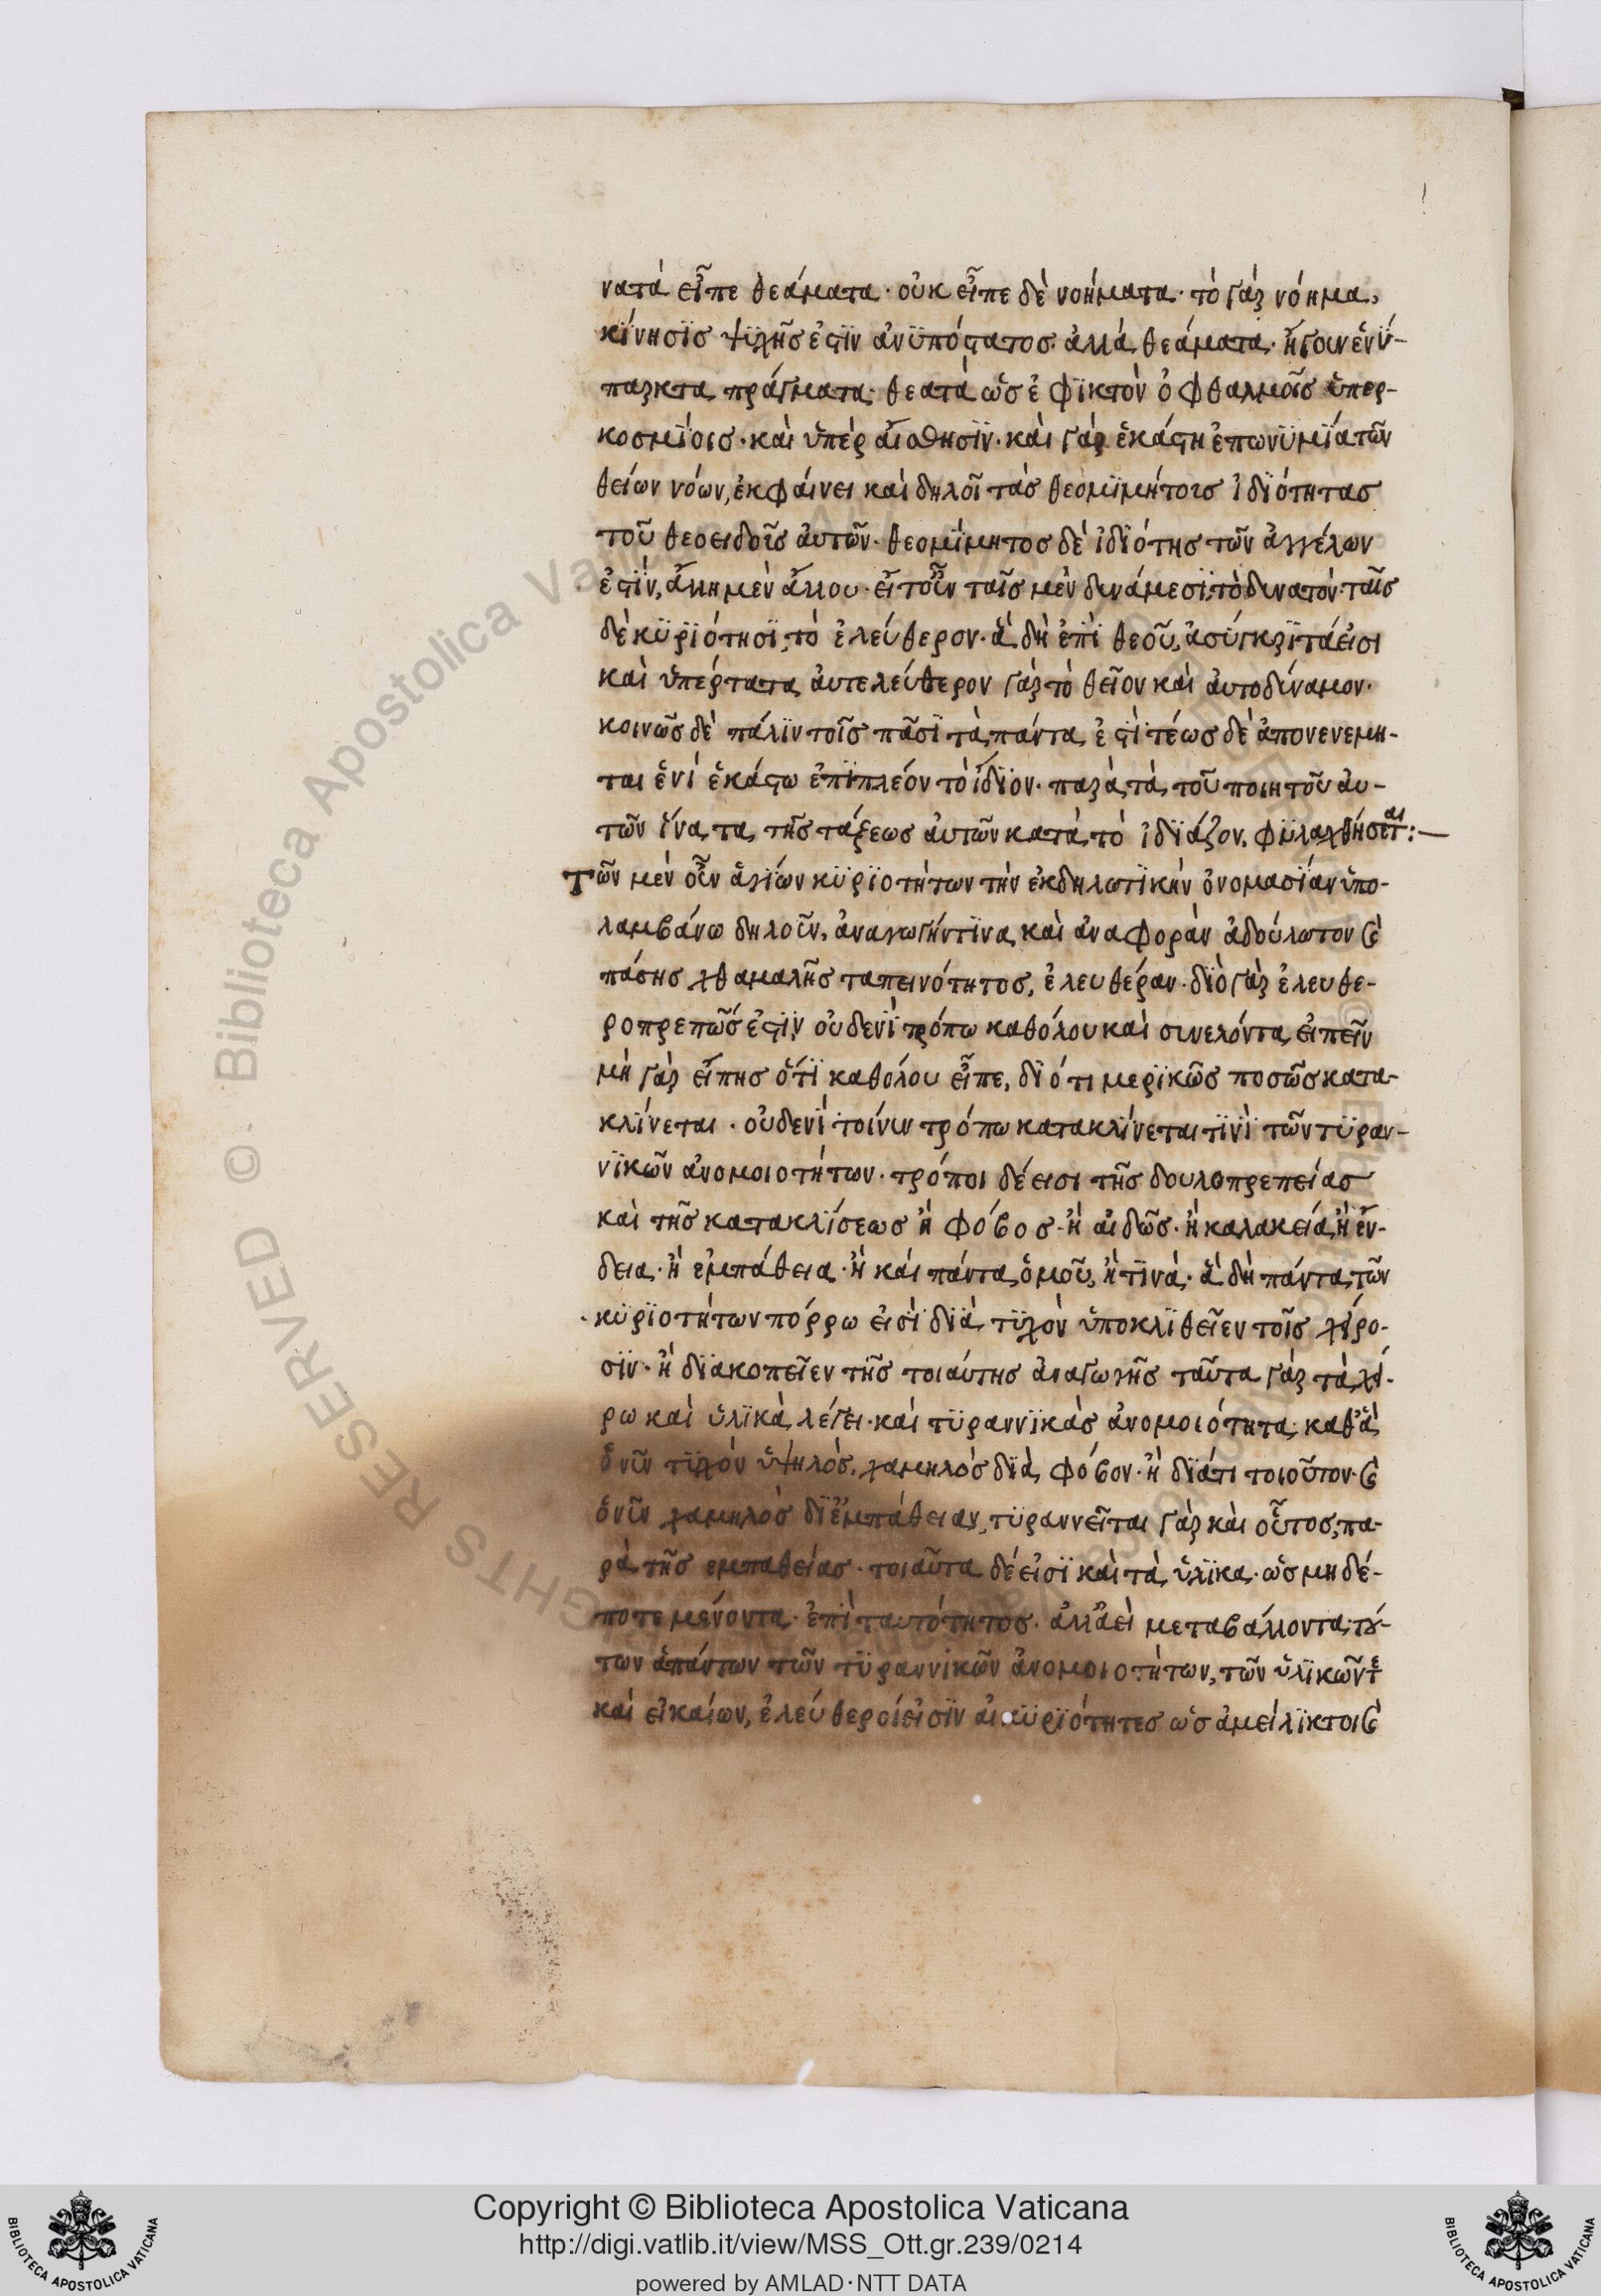 νατὰ εἶπε θεάματα· οὐκ εἶπε δὲ νοήματα· τὸ γὰρ νόημα,
κίνησϊσ ψϋχῆσ ἐστϊν ἀνϋπόστατοσ. ἀλλὰ θεάματα· ἤγουν ἐνϋ-
παρκτα πράγματα· θεατὰ ὡσ ἐφϊκτὸν ὀφθαλμοῖσ ὑπερ-
κοσμΐοισ· καὶ ὑπὲρ αἴσθησϊν· καὶ γὰρ ἑκάστη ἐπωνϋμΐα τῶν
θείων νόων, ἐκφαίνει καὶ δηλοῖ τὰσ θεομϊμήτουσ ἰδϊότητασ
τοῦ θεοειδοῦσ ἀυτῶν· θεομΐμητοσ δὲ ἰδϊότησ τῶν ἀγγέλων
ἐστϊν, ἄλλη μὲν ἄλλου· εἰ τοῦν ταῖσ μὲν δυνάμεσϊ, τὸ δυνατόν· ταῖσ
δὲ κϋρϊότησϊ, τὸ ἐλεύθερον· ἃ δὴ ἐπὶ θεοῦ, ἀσύγκρϊτά εἰσι
καὶ ὑπέρτατα ἀυτελεύθερον γὰρ τὸ θεῖον καὶ ἀυτοδύναμον·
κοινῶσ δὲ πάλϊν τοῖσ πᾶσϊ τὰ πάντα ἐστΐ τέωσ δὲ ἀπονενεμη-
ται ἑνὶ ἑκάστω ἐπϊπλέον τὸ ἴδϊον· παρὰ τὰ τοῦ ποιητοῦ ἀυ-
τῶν ἵνα τα τῆσ τάξεωσ ἀυτῶν κατὰ τὸ ἰδϊάζον, φϋλαχθήσεται:—
Τῶν μὲν οὖν ἁγΐων κϋρϊοτήτων τὴν ἐκδηλωτϊκὴν ὀνομασΐαν ὑπο-
λαμβάνω δηλοῦν, ἀναγωγήν τϊνα καὶ ἀναφορὰν ἀδούλωτον καὶ
πάσησ χθαμαλῆσ ταπεινότητοσ, ἐλευθέραν· δϊὸ γὰρ ἐλευθε-
ροπρεπῶσ ἐστϊν οὐδενΐ τρόπω καθόλου καὶ συνελόντα εἰπεῖν
μὴ γὰρ εἴπησ ὅτϊ καθόλου εἶπε, δϊότι μερϊκῶσ ποσῶσ κατα-
κλΐνεται· οὐδενΐ τοίνυν τρόπω κατακλΐνεται τϊνΐ τῶν τϋραν-
νϊκῶν ἀνομοιοτήτων· τρόποι δέ εισι τῆσ δουλοπρεπείασ
καὶ τῆσ κατακλΐσεωσ ἢ φόβοσ· ἢ αἰδῶσ· ἢ καλακεία, ἢ ἔν-
δεια· ἢ ἐμπάθεια· ἢ καὶ πάντα ὁμοῦ, ἢ τϊνὰ· ἃ δὴ πάντα τῶν
κϋρϊοτήτων πόρρω εἰσὶ δϊὰ τϋχὸν ὑποκλϊθεῖεν τοῖσ χείρο-
σϊν· ἢ δϊακοπεῖεν τῆσ τοιαύτησ ἀναγωγῆσ ταῦτα γὰρ τὰ χεί-
ρω καὶ ὑλϊκὰ λέγει· καὶ τϋραννϊκὰσ ἀνομοιότητα· καθ' ἃ
ὁ νῦν τϋχὸν ὑψηλὸσ, χαμηλὸσ δϊὰ φόβον· ἢ δϊάτι τοιοῦτον· καὶ
ὁ νῦν χαμηλὸσ δϊ' ἐμπάθειαν, τϋραννεῖται γὰρ καὶ οὗτοσ, πα-
ρὰ τῆσ εμπαθείασ· τοιαῦτα δέ εἰσϊ καὶ τὰ ὑλϊκα· ὡσ μηδέ-
ποτε μένοντα· ἐπὶ ταυτότητοσ· ἀλλ' ἀεὶ μεταβάλλοντα· τού-
των ἁπάντων τῶν τϋραννικῶν ἀνομοιοτήτων, τῶν ὑλϊκῶν τε
καὶ εἰκαίων, ἐλεύθεροί εἰσϊν ἁι κϋρϊότητεσ ὡσ ἀμείλϊκτοι καὶ
Copyright © Biblioteca Apostolica Vaticana
http://digi.vatlib.it/view/MSS_Ott.gr.239/0214
powered by AMLAD·NTT DATA